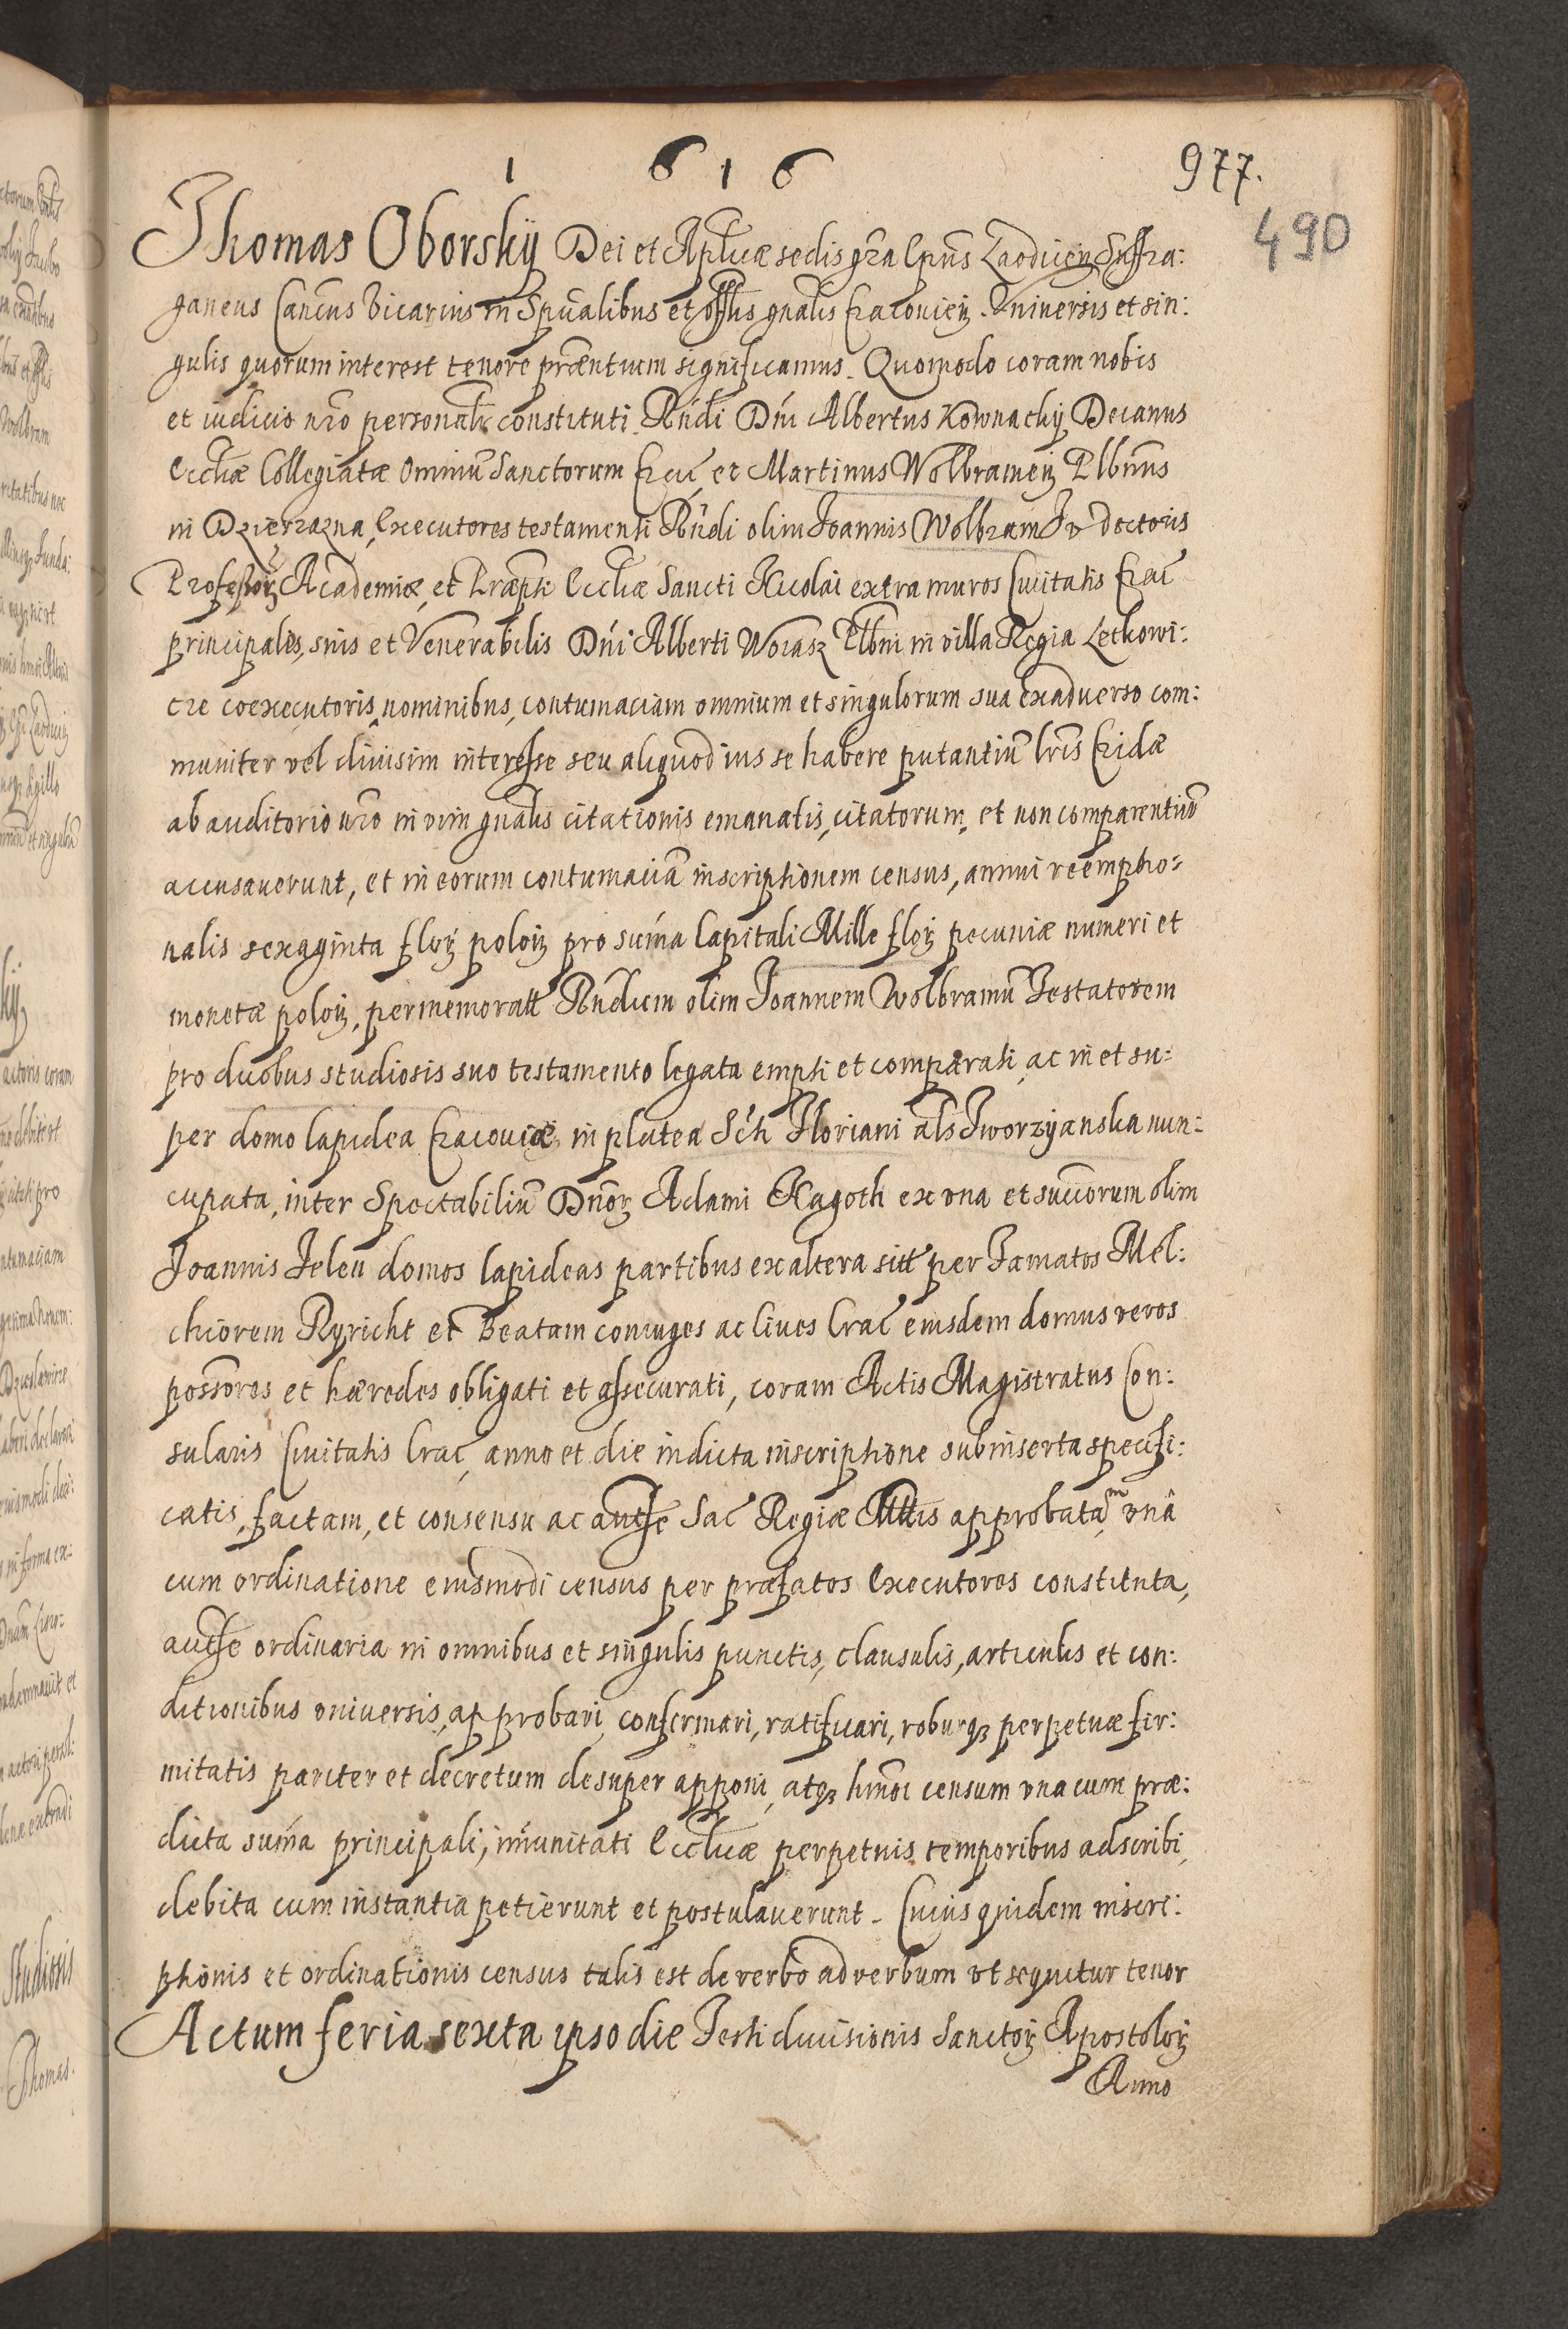 1 6 1 6
977.
490
Thomas Oborskÿ Dei et Aplicæ sedis gra Epus Laodicen Suffra:
ganeus Cancus Vicarius in Spualibus et offlis gnalis Cracovien. Universis et sin:
gulis quorum interest tenore præntium significamus. Quomodo coram nobis
et iudicio nro personalr constituti Rndi Dni Albertus Kownackÿ Decanus
Eccliæ Collegiatæ Ominiu Sanctorum Crac, et Martinus Wolbramen Plbnus
in Dzierzazna, Executores testamenti Rndi olim Joannis Wolbram J v doctoris
Professor Academiæ, et Præpti Eccliæ Sancti Nicolai extra muros Civitatis Crac
principales, suis et Venerabilis Dni Alberti Worasz Plbni in villa Regia Letkowi:
cze coexecutoris nominibus, contumaciam omnium et singulorum sua exadverso com:
muniter vel divisim interesse seu aliquod ius se habere putantiu lris Cridæ
ab auditorio nro in vim gnalis citationis emanatis, citatorum, et non comparentiu
accusaverunt, et in eorum contumacia inscriptionem census, annui reemptio:
nalis sexaginta flor polon pro suma Capitali Mille flor pecuniæ numeri et
monetæ polon, per memoratt Rndum olim Joannem Wolbramu Testatorem
pro duobus studiosis suo testamento legata empti et comparati, ac in et su:
per domo lapidea Cracoviæ in platea Scti Floriani als Tworzyanska nun:
cupata, inter Spectabiliu Dnor Adami Nagoth ex una et succorum olim
Joannis Jeleu domos lapideas partibus ex altera sitt per Famatos Mel:
chiorem Ryricht et Beatam coniuges ac Cives Crac eiusdem domus veros
possores et hæredes obligati et assecurati, coram Actis Magistratus Con:
sularis Civitatis Crac, anno et die in dicta inscriptione subinserta specifi:
catis, factam, et consensu ac autte Sac Regiæ Mttis approbatam, unâ
cum ordinatione eiusmodi census per præfatos Executores constituta,
autte ordinaria in omnibus et singulis punctis, clausulis, articulis et con:
ditionibus universis, approbari, confirmari, ratificari, roburq perpetuæ fir:
mitatis pariter et decretum desuper apponi, atq hmoi censum una cum præ:
dicta suma principali, imunitati Eccliæ perpetuis temporibus adscribi,
debita cum instantia petierunt et postulaverunt. Cuius quidem inscri:
ptionis et ordinationis census talis est de verbo ad verbum ut sequitur tenor
Actum feria sexta ipso die Festi divisionis Sanctor Apostolor
Anno